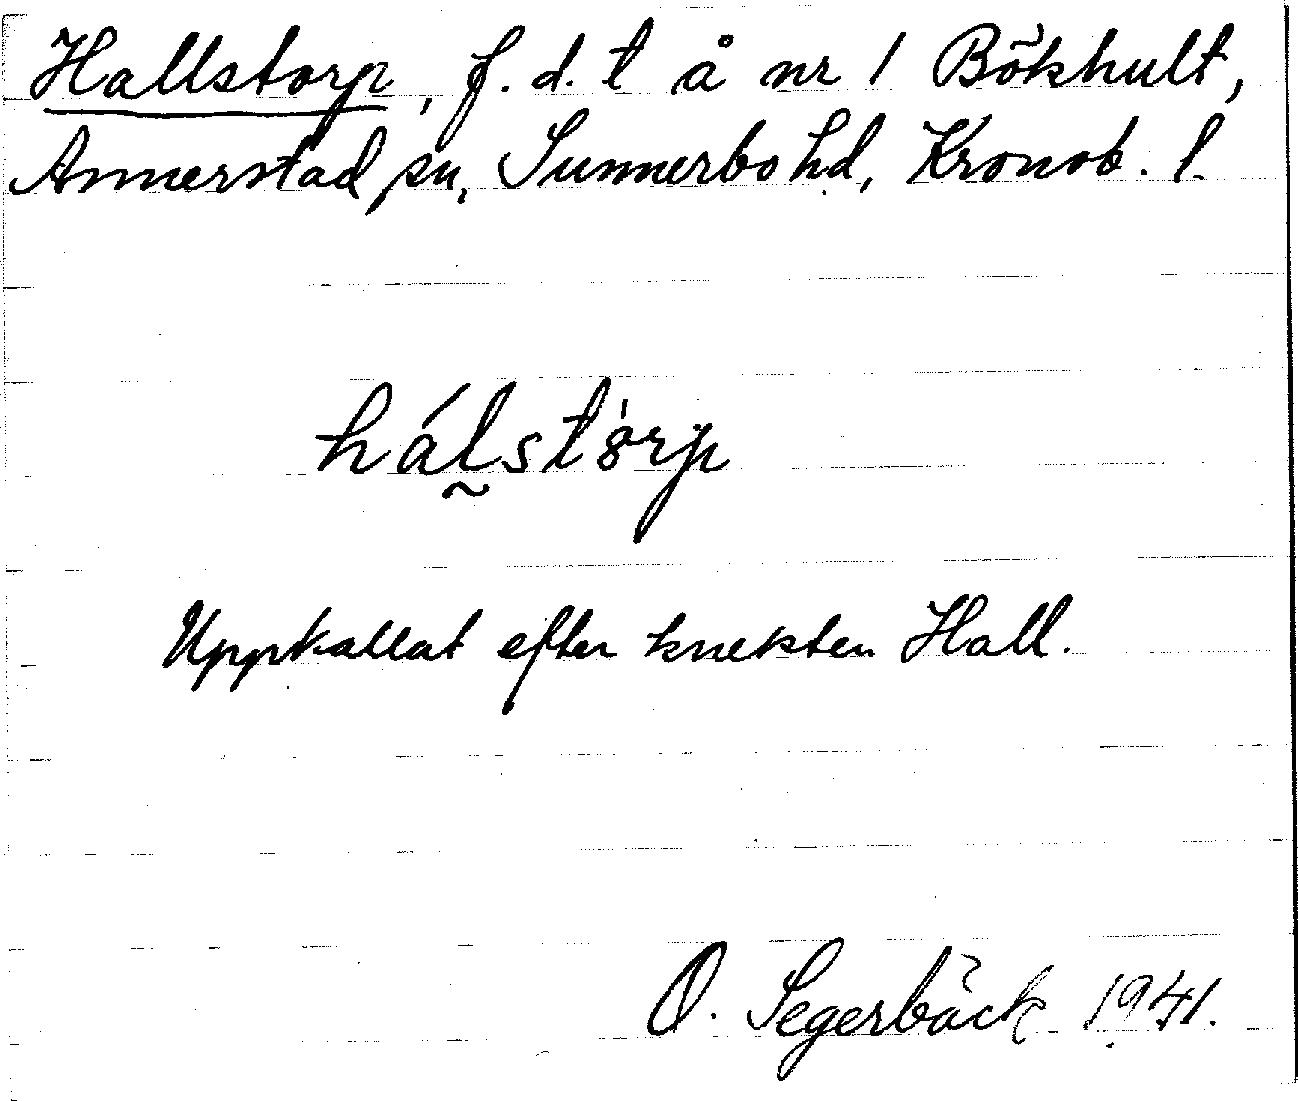 Hallstorp, f. d. t å nr 1 Bökhult,
Annerstad sn, Sunnerbo hd, Kronob. l.
hálstòrp
Uppkallat efter knekten Hall.
O. Segerbäck 1941.